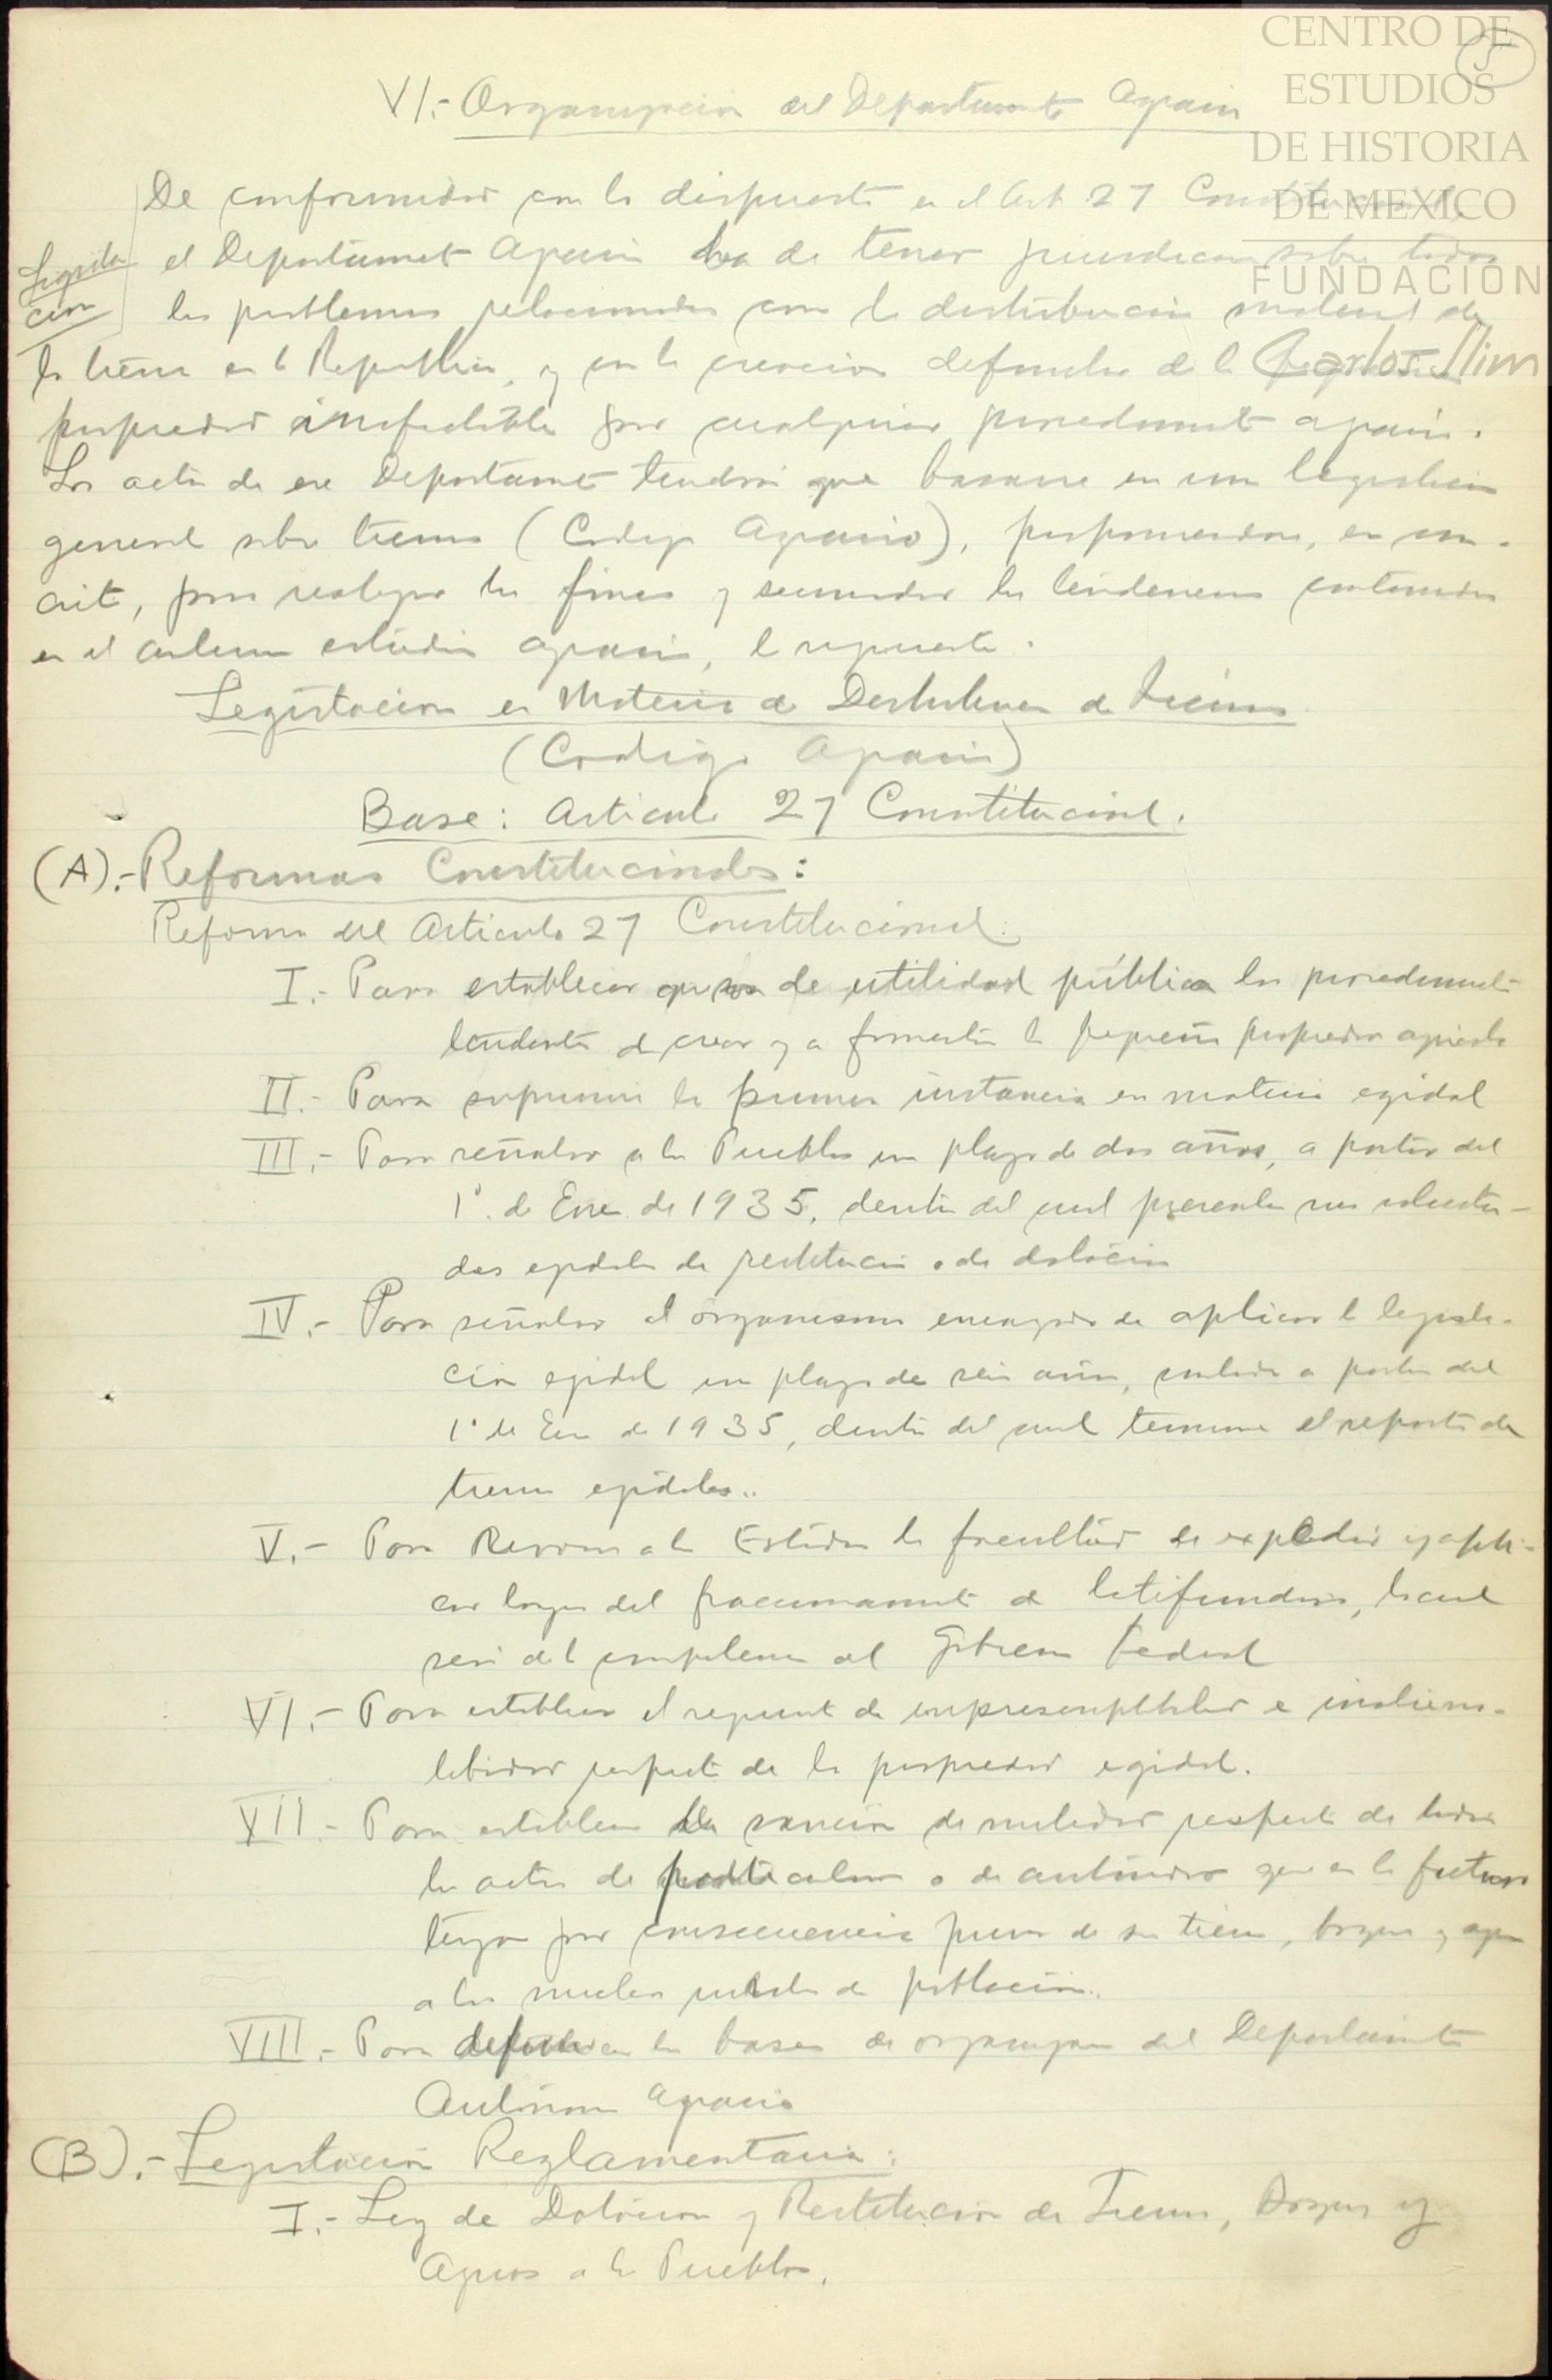 CENTRO DE
ESTUDIOS
DE HISTORIA
DE MEXICO
FUNDACIÓN
Carlos Slim
5
VI.- Organización del Departamento Agrario
De conformidad con lo dispuesto en el Art. 27 Constitucional,
Legisla
ción
el Departamento Agrario ha de tener jurisdicción sobre todos
los problemas relacionados con la distribución material de
la tierra en la República, y con la creación definitiva de la
propiedad inafectable por cualquier procedimiento agrario.
Los actos de ese Departamento tendrán que basarse en una legislación
general sobre tierras (Código Agrario), proponiendose, en con-
creto, para realizar los fines y secundar las tendencias contenidas
en el anterior estudio agrario, la siguiente:
Legislación en Materia de Distribución de Tierras
(Código Agrario)
Base: Artículo 27 Constitucional.
(A).- Reformas Constitucionales:
Reforma del Artículo 27 Constitucional:
I.- Para establecer que son de utilidad pública los procedimientos
tendentes a crear y a fomentar la pequeña propiedad agrícola
II.- Para suprimir la primera instancia en materia egidal
III.- Para señalar a los Pueblos un plazo de dos años, a partir del
1º de Enero de 1935, dentro del cual presenten sus solicitu-
des egidales de restitución o de dotación
IV.- Para señalar al organismo encargado de aplicar la legisla-
ción egidal un plazo de seis años, contado a partir del
1º de Enero de 1935, dentro del cual termine el reparto de
tierras egidales..
V.- Para a los Estados la facultad de expedir y apli-
car leyes del fraccionamiento de latifundios, la cual
será de la competencia del Gobierno Federal
VI.- Para establecer el requisito de imprescriptibilidad e inaliena-
bilidad respecto de la propiedad egidal.
VII.- Para establecer la sanción de nulidad respecto de todos
los actos de particulares o de autoridades que en lo futuro
tengan por consecuencia privar de sus tierras, bosques y aguas
a los nucleos de población..
VIII.- Para las bases de organización del Departamento
Autónomo Agrario
(B).- Legislación Reglamentaria:
I.- Ley de Dotación y Restitución de Tierras, Bosques y
Aguas a los Pueblos.